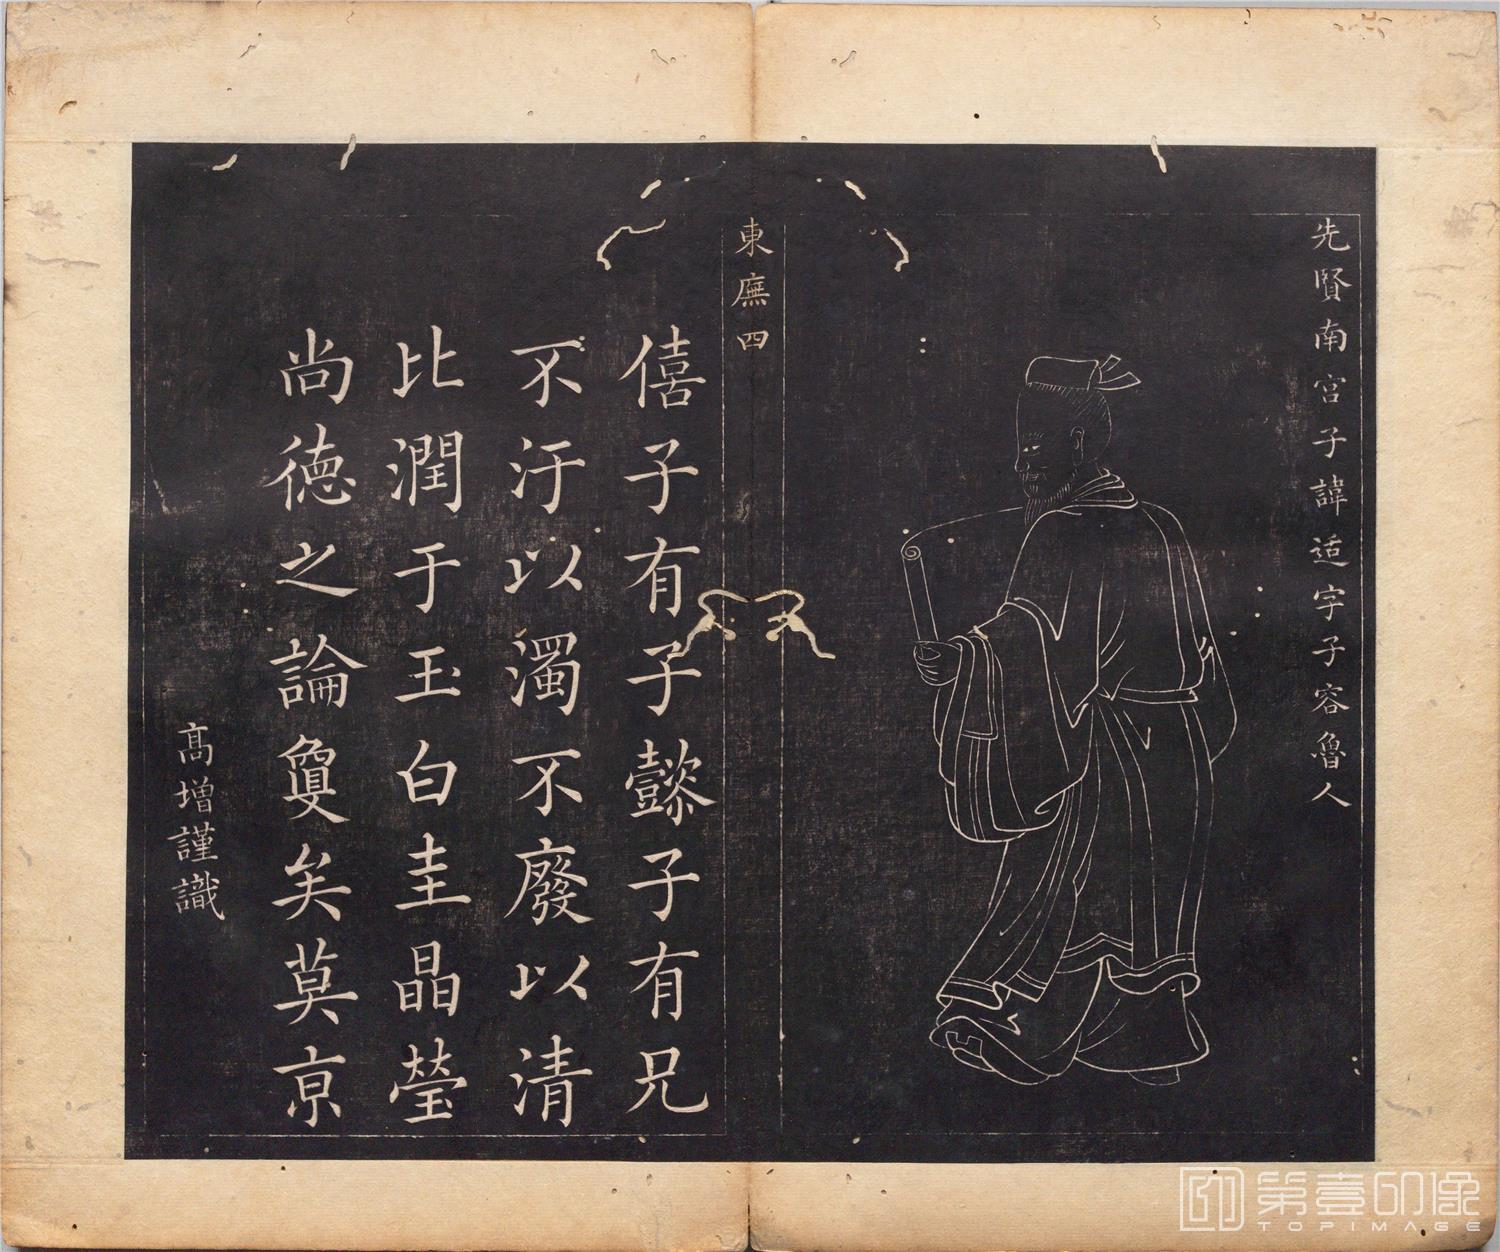 先賢南宮子諱适字子容魯人
東廡四
僖子有子懿子有兄
不汙以濁不廢以清
比潤于玉白圭晶瑩
尚德之論敻矣莫京
高增謹識
第壹印像
TOPIMAGE